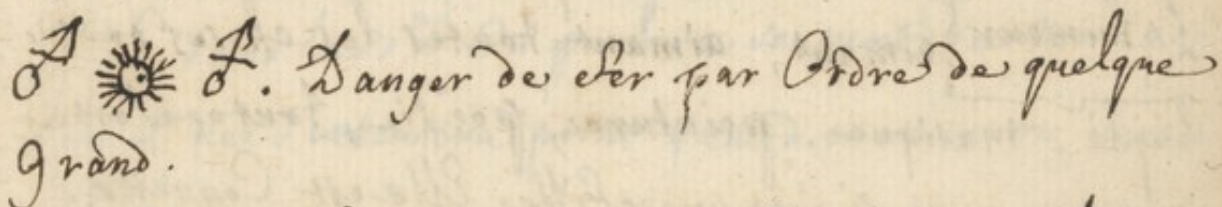 ♂ ☉ ♂. Danger de fer par Ordre de quelque
grand.